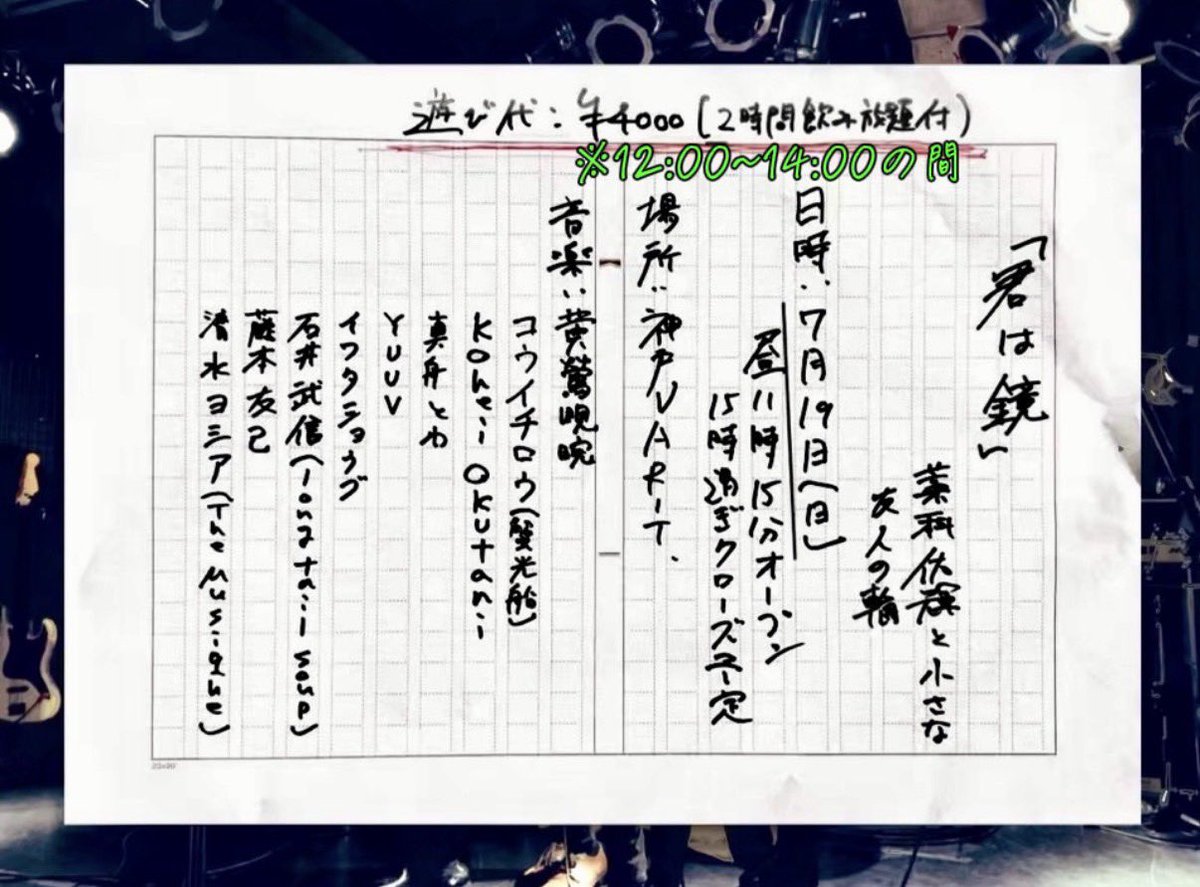 遊び代：¥4000（2時間飲み放題付）
※12:00~14:00の間
「君は鏡」
薬科伏寝と小さな
友人の輪
日時：7月19日（日）
昼11時15分オープン
15時過ぎクローズ予定
場所：神戸VARIT.
音楽：黄鶯睍睆
コウイチロウ（蛍光船）
Kohei Okutani
真舟とわ
YUUV
イフタショウグ
石井武信（longtail soup）
藤本友己
清水ヨシア（The Musique）
20×20